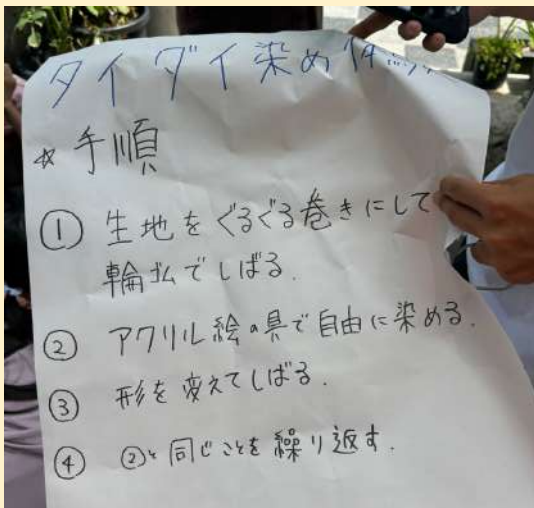 タイダイ染め体
☆手順
① 生地をぐるぐる巻きにして
輪ゴムでしばる.
② アクリル絵の具で自由に染める.
③ 形を変えてしばる.
④ ②と同じことを繰り返す.